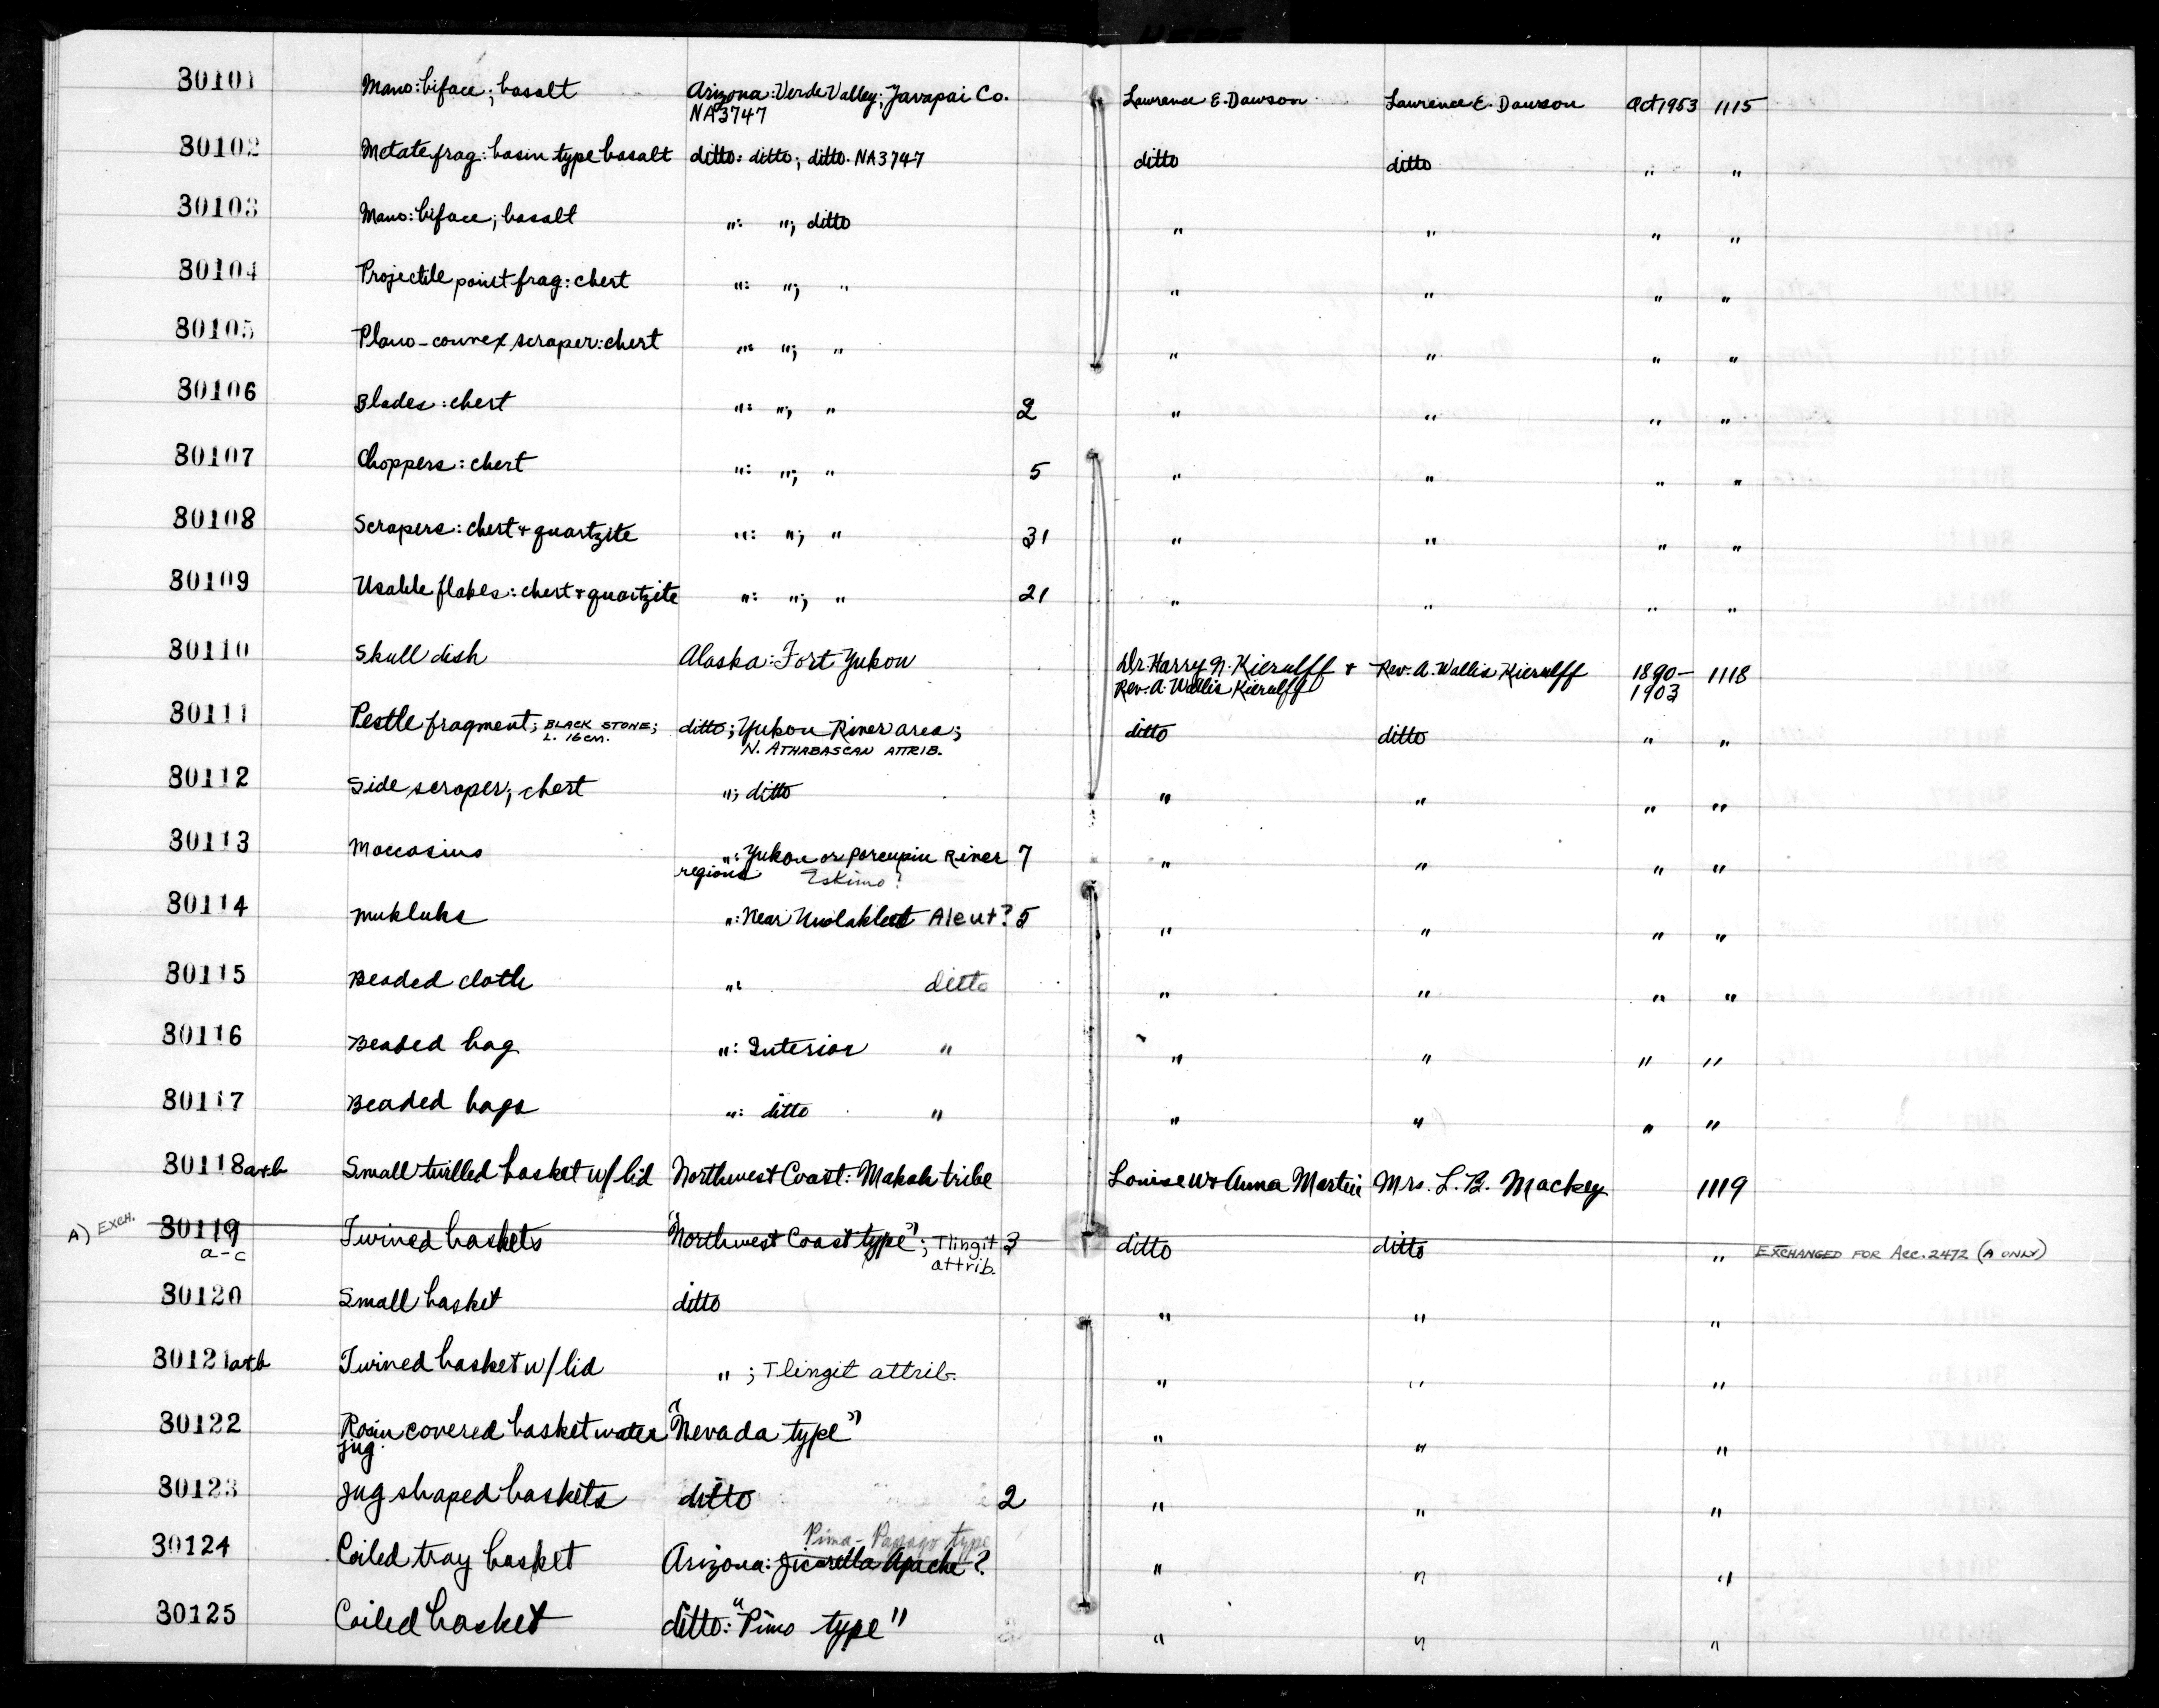 30101 Mano: biface; basalt Arizona: Verde Valley; Yavapai Co. Lawrence E. Dawson Lawrence E. Dawson Oct 1953 1115
NA3747
30102 Metate frag: basin type basalt ditto: ditto; ditto. NA3747 ditto ditto " "
30103 Mano: biface; basalt ": "; ditto " " " "
30104 Projectile point frag: chert ": "; " " " " "
30105 Plano-convex scraper: chert ": "; " " " " "
30106 Blades: chert ": "; " 2 " " " "
30107 Choppers: chert ": "; " 5 " " " "
30108 Scrapers: chert + quartzite ": "; " 31 " " " "
30109 Usable flakes: chert + quartzite ": "; " 21 " " " "
30110 Skull dish Alaska: Fort Yukon Dr. Harry N. Kierulff + Rev. A. Wallis Kierulff 1890- 1118
Rev. A. Wallis Kierulff 1903
30111 Pestle fragment; BLACK STONE; ditto; Yukon River area; ditto ditto " "
L. 16cm. N. ATHABASCAN ATTRIB.
30112 Side scraper; chert "; ditto " " " "
30113 Moccasins ": Yukon or Porcupin River 7 " " " "
regions Eskimo?
30114 Mukluks ": Near Unalakleet Aleut? 5 " " " "
30115 Beaded cloth ": ditto " " " "
30116 Beaded bag ": Interior " " " " "
30117 Beaded bags ": ditto " " " " "
30118a+b Small twilled basket w/ lid Northwest Coast: Makah tribe Louise W + Anna Martin Mrs. L. B. Mackey 1119
A) EXCH. 30119 Twined baskets "Northwest Coast type"; Tlingit 3 ditto ditto " EXCHANGED FOR Acc. 2472 (A ONLY)
a-c attrib.
30120 Small basket ditto " " "
30121a+b Twined basket w/ lid "; Tlingit attrib. " " "
30122 Rosin covered basket water "Nevada type" " " "
jug.
30123 Jug shaped baskets ditto 2 " " "
Pima-Papago type
30124 Coiled tray basket Arizona: Jicarella Apache? " " "
30125 Coiled basket ditto: "Pimo type" " " "